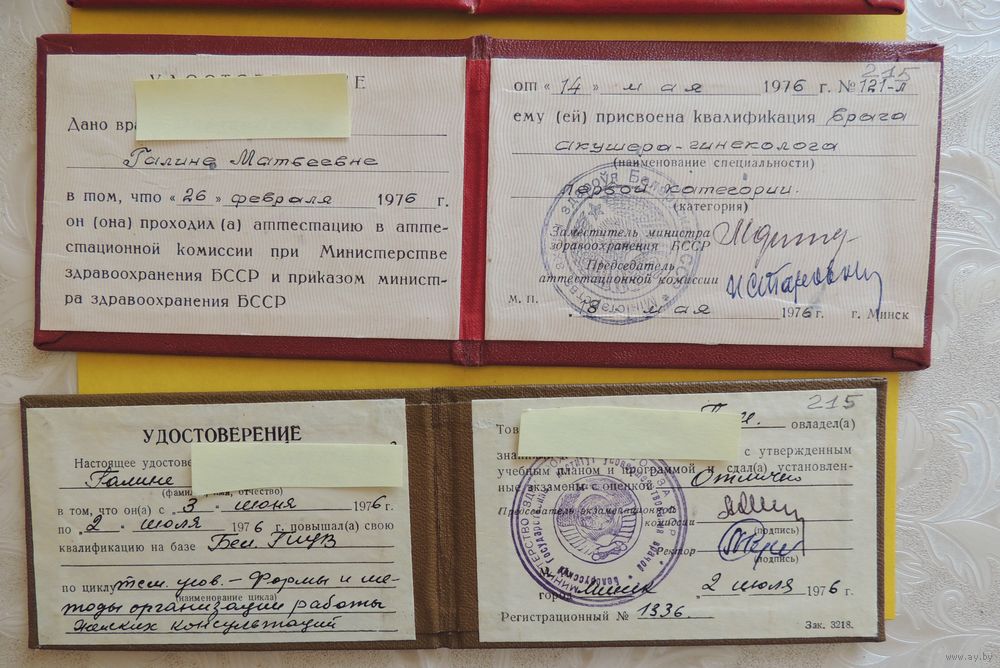 УДОСТОВЕРЕНИЕ
Дано вра
Галине Матвеевне
в том, что «26» февраля 1976 г.
он (она) проходил (а) аттестацию в атте-
стационной комиссии при Министерстве
здравоохранения БССР и приказом минист-
ра здравоохранения БССР
215
от «14» мая 1976 г. № 121-л
ему (ей) присвоена квалификация врача
акушера-гинеколога
(наименование специальности)
первой категории.
(категория)
Заместитель министра
здравоохранения БССР
Председатель
аттестационной комиссии
М. П.
18 мая 1976 г. г. Минск
УДОСТОВЕРЕНИЕ
Настоящее удостове
Галине
(фамилия, имя, отчество)
в том, что он(а) с „3“ июня 1976 г.
по „2“ июля 1976 г. повышал(а) свою
квалификацию на базе Бел. ГИУВ
по циклу тем. усов. – Формы и ме-
(наименование цикла)
тоды организации работы
женских консультаций
215
Тов. овладел(а)
с утвержденным
учебным планом и программой и сдал(а) установлен-
ные экзамены с оценкой Отлично
Председатель экзаменационной
комиссии
(подпись)
Ректор
(подпись)
город Минск „2 июля 1976 г.
Регистрационный № 1336.
Зак. 3218.
www.ay.by